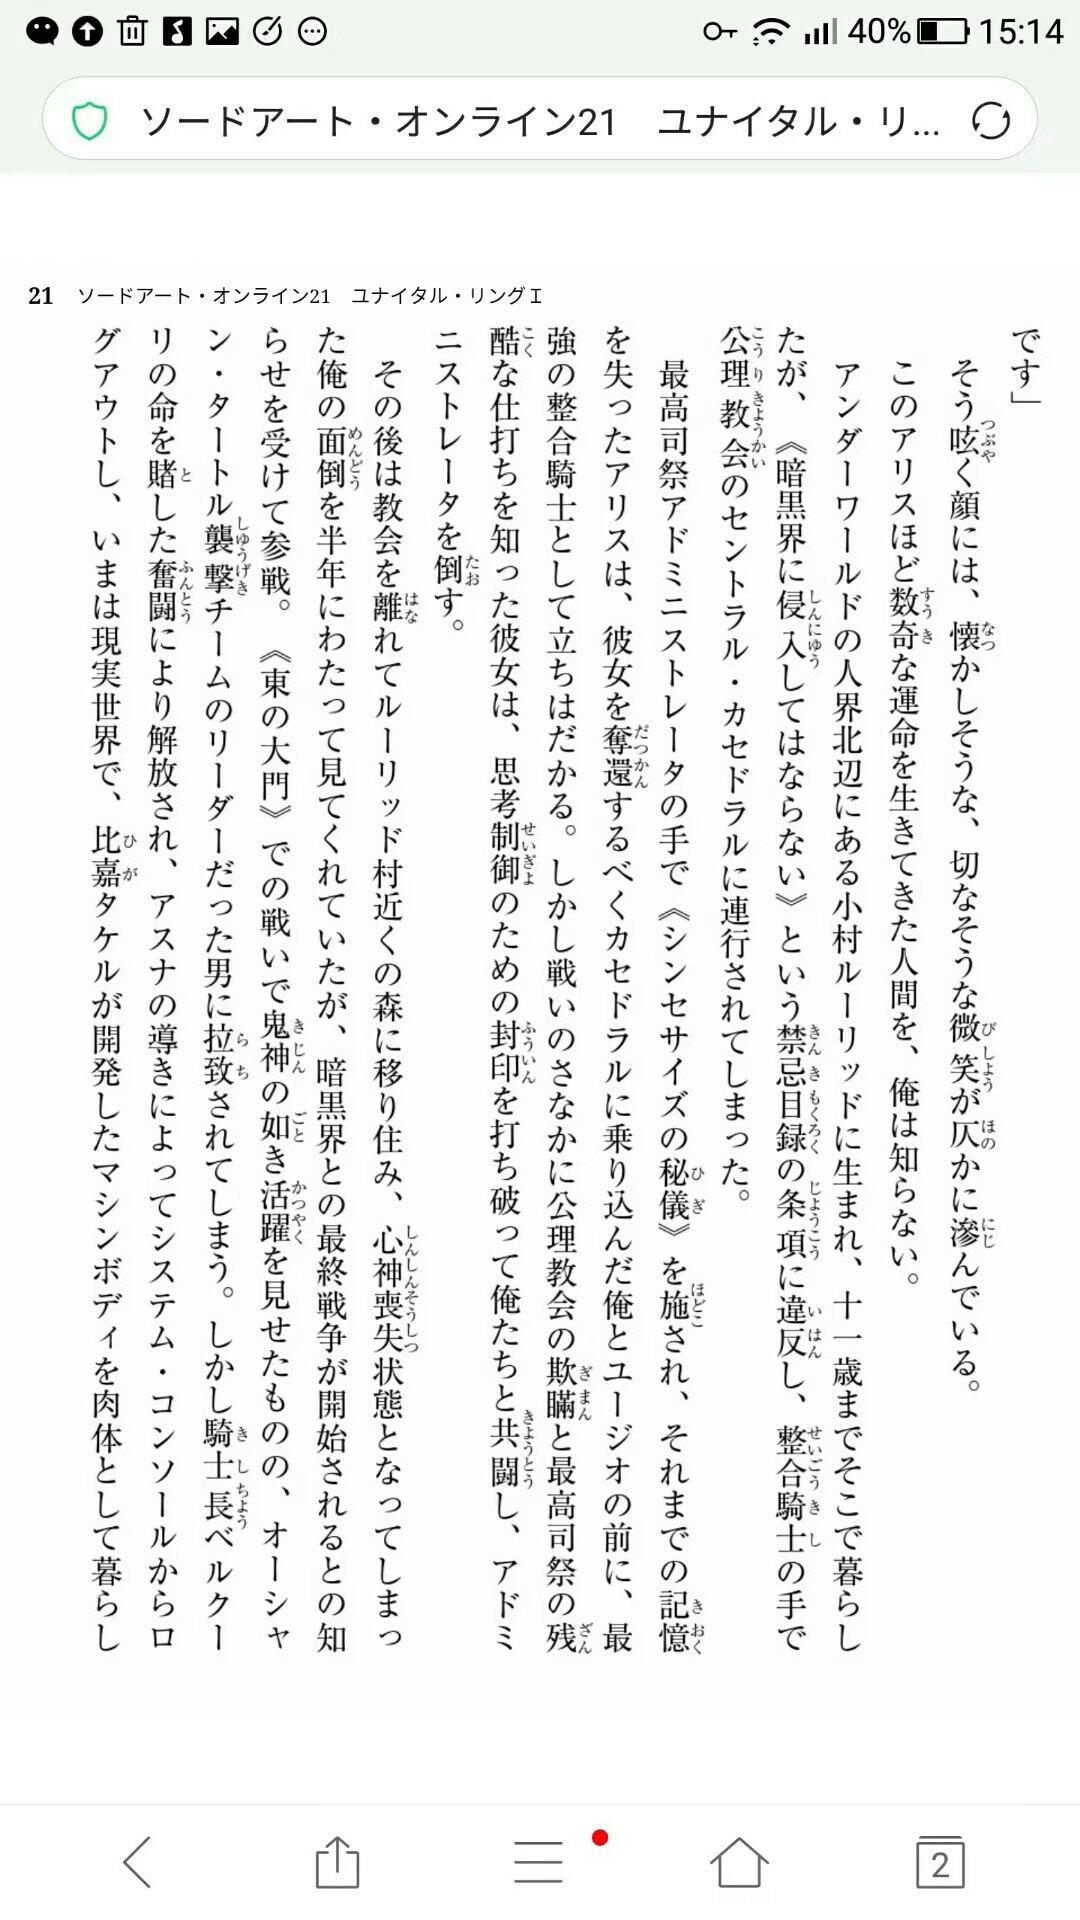 40% 15:14
ソードアート・オンライン21　ユナイタル・リ...
21　ソードアート・オンライン21　ユナイタル・リングⅠ
です」
　そう呟く顔には、懐かしそうな、切なそうな微笑が仄かに滲んでいる。
　このアリスほど数奇な運命を生きてきた人間を、俺は知らない。
　アンダーワールドの人界北辺にある小村ルーリッドに生まれ、十一歳までそこで暮らし
たが、《暗黒界に侵入してはならない》という禁忌目録の条項に違反し、整合騎士の手で
公理教会のセントラル・カセドラルに連行されてしまった。
　最高司祭アドミニストレータの手で《シンセサイズの秘儀》を施され、それまでの記憶
を失ったアリスは、彼女を奪還するべくカセドラルに乗り込んだ俺とユージオの前に、最
強の整合騎士として立ちはだかる。しかし戦いのさなかに公理教会の欺瞞と最高司祭の残
酷な仕打ちを知った彼女は、思考制御のための封印を打ち破って俺たちと共闘し、アドミ
ニストレータを倒す。
　その後は教会を離れてルーリッド村近くの森に移り住み、心神喪失状態となってしまっ
た俺の面倒を半年にわたって見てくれていたが、暗黒界との最終戦争が開始されるとの知
らせを受けて参戦。《東の大門》での戦いで鬼神の如き活躍を見せたものの、オーシャ
ン・タートル襲撃チームのリーダーだった男に拉致されてしまう。しかし騎士長ベルクー
リの命を賭した奮闘により解放され、アスナの導きによってシステム・コンソールからロ
グアウトし、いまは現実世界で、比嘉タケルが開発したマシンボディを肉体として暮らし
2